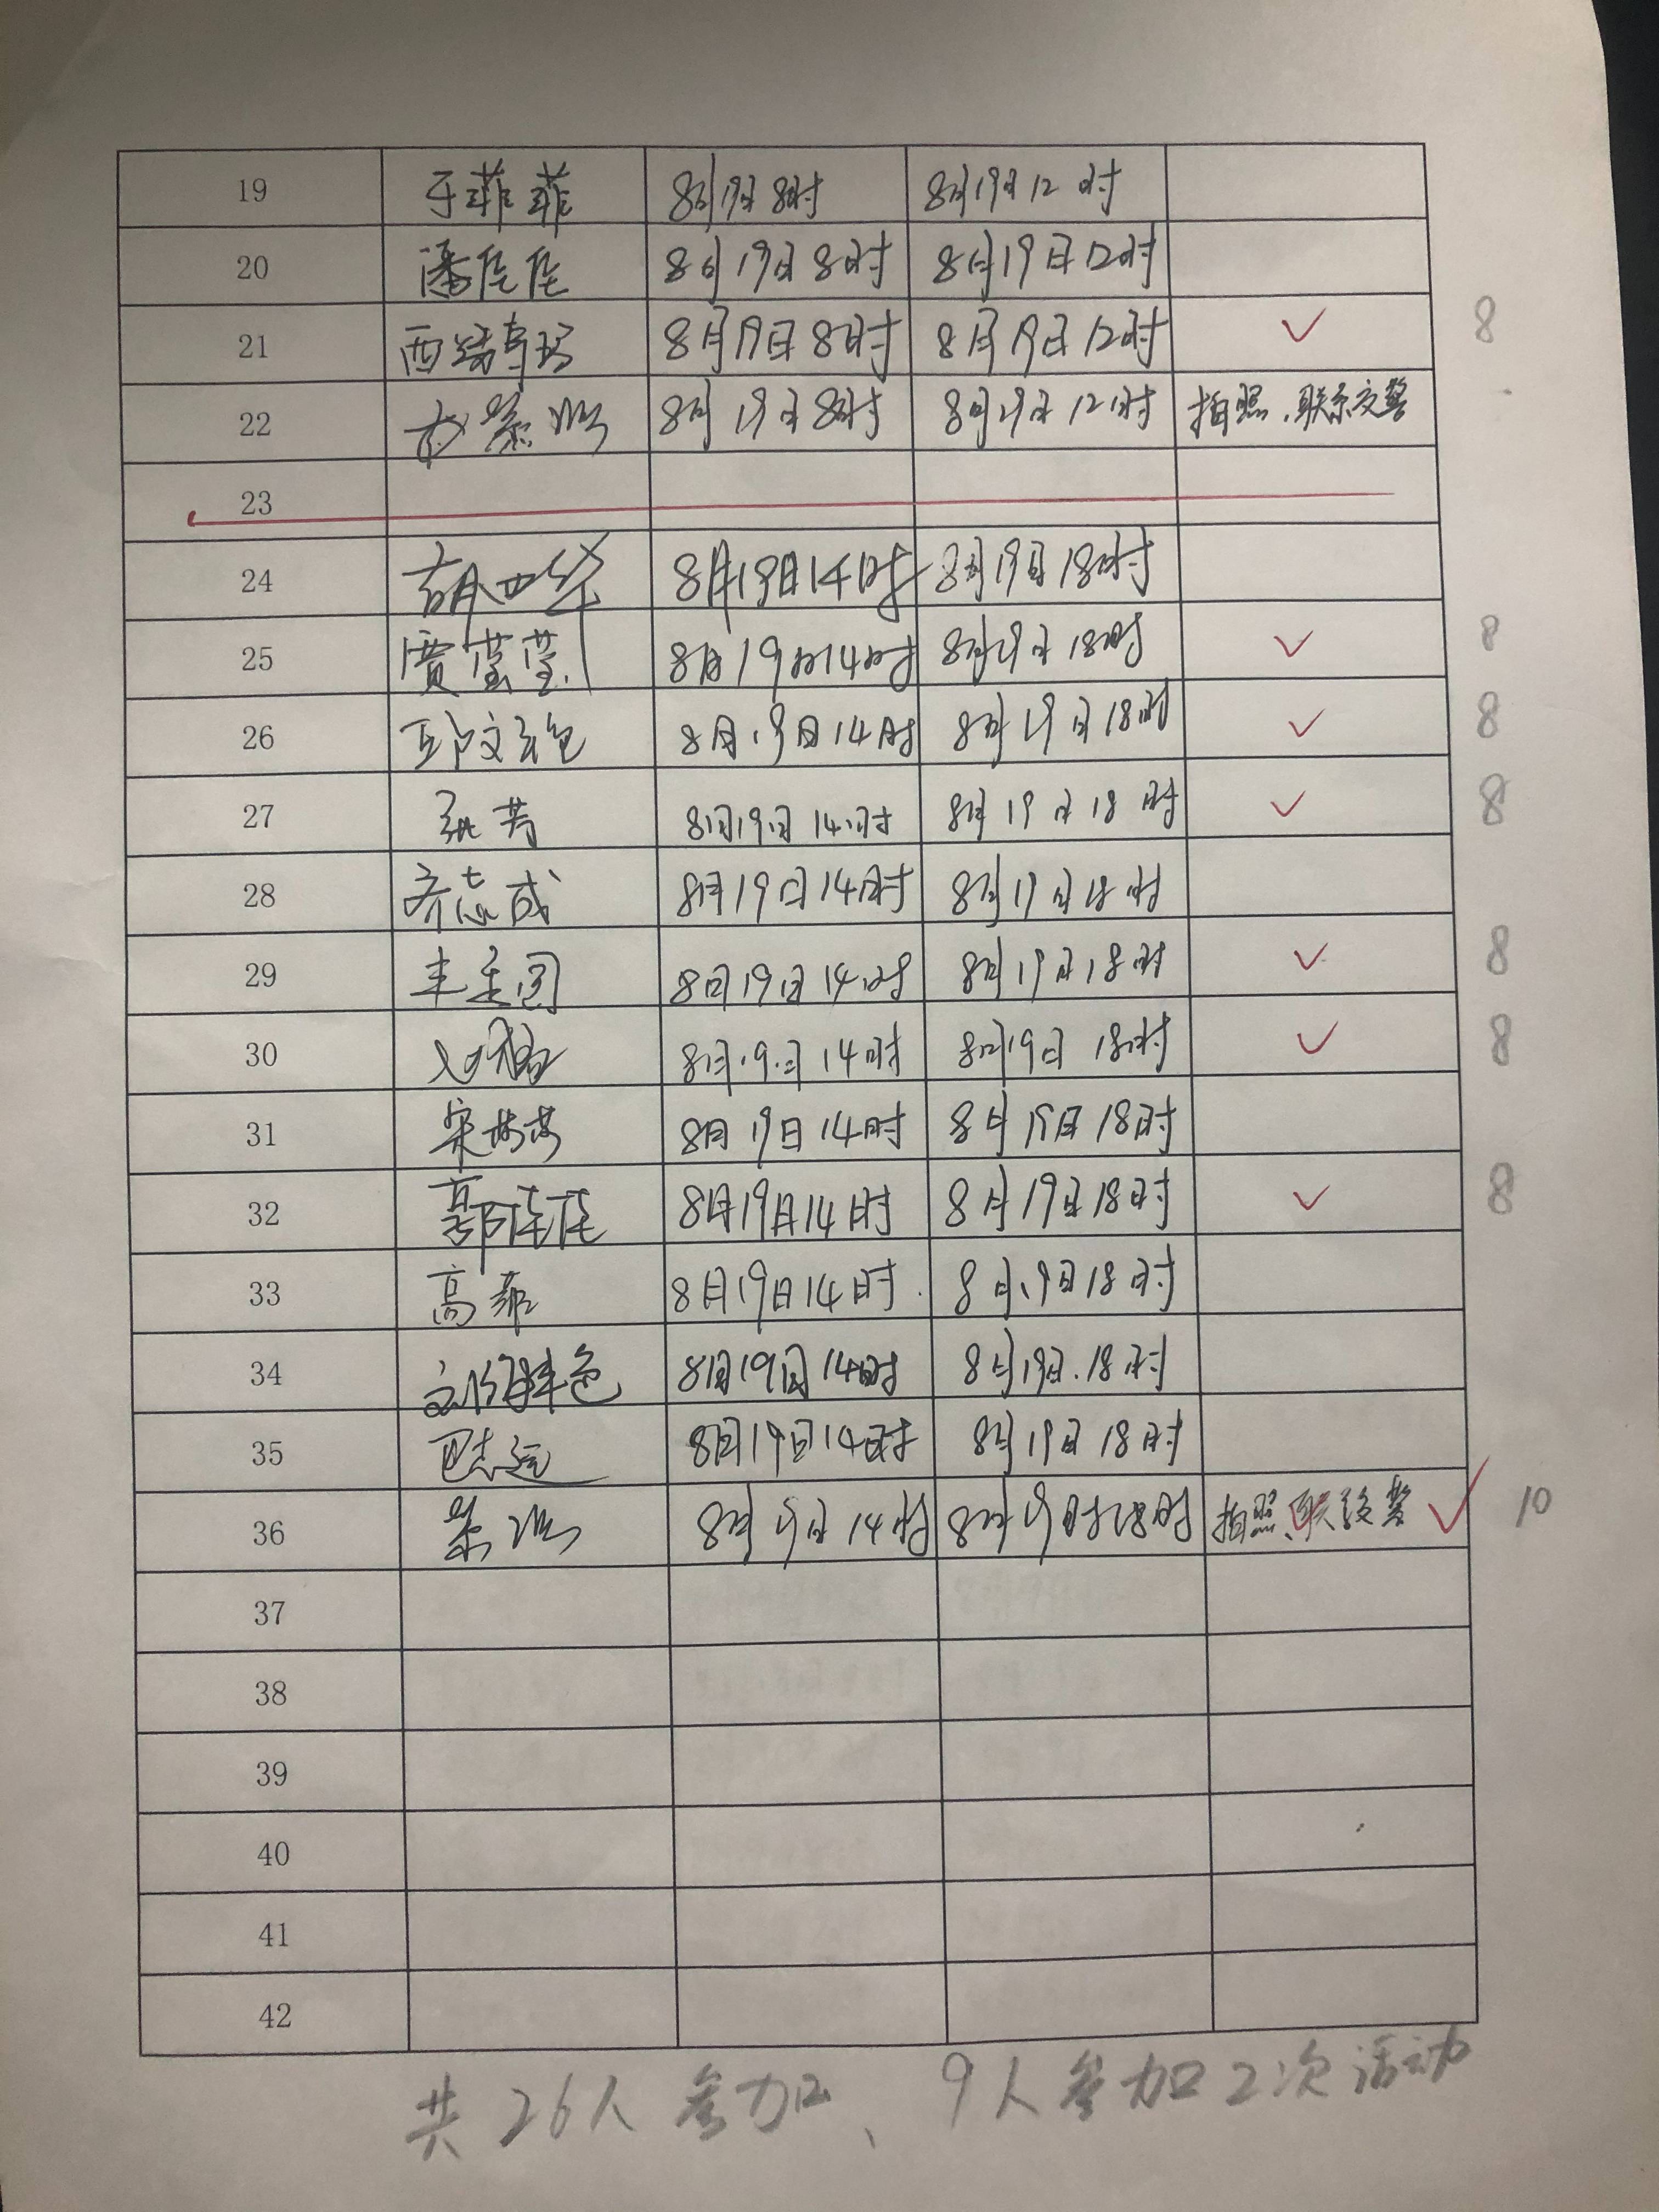 19 于菲菲 8月19日8时 8月19日12时
20 潘佳佳 8月19日8时 8月19日12时
21 8月19日8时 8月19日12时 ✓ 8
22 8月19日8时 8月19日12时 拍照、联系交警
23
24 胡四华 8月19日14时 8月19日18时
25 贾莹莹 8月19日14时 8月19日18时 ✓ 8
26 8月19日14时 8月19日18时 ✓ 8
27 8月19日14时 8月19日18时 ✓ 8
28 齐志成 8月19日14时 8月19日18时
29 8月19日14时 8月19日18时 ✓ 8
30 8月19日14时 8月19日18时 ✓ 8
31 8月19日14时 8月19日18时
32 郭佳佳 8月19日14时 8月19日18时 ✓ 8
33 高菲 8月19日14时 8月19日18时
34 8月19日14时 8月19日.18时
35 8月19日14时 8月19日18时
36 8月19日14时 8月19日18时 拍照、联系交警 ✓ 10
37
38
39
40
41
42
共26人参加、9人参加2次活动